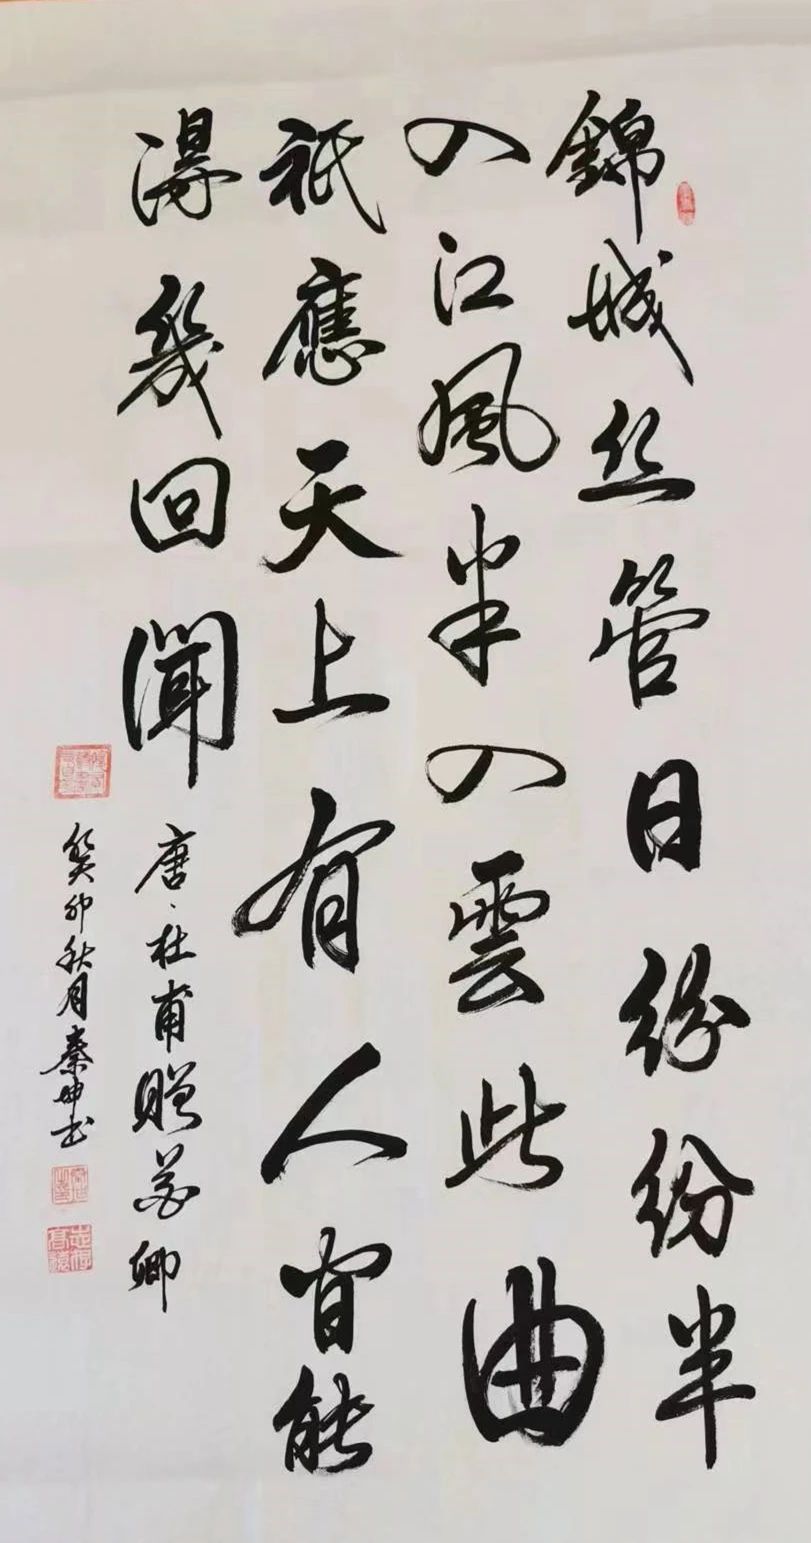 錦城丝管日紛紛半
入江風半入雲此曲
祇應天上有人间能
得幾回聞 唐、杜甫贈花卿
癸卯秋月秦坤书